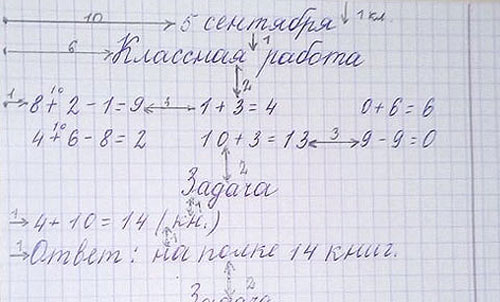 10 5 сентября 1 кл.
6 Классная работа 1
2
1 8+2-1=9 3 1+3=4 0+6=6
10
4+6-8=2 10+3=13 3 9-9=0
10
2
Задача
1
1 4+10=14 (кн.)
1
1 Ответ: на полке 14 книг.
2
Задача